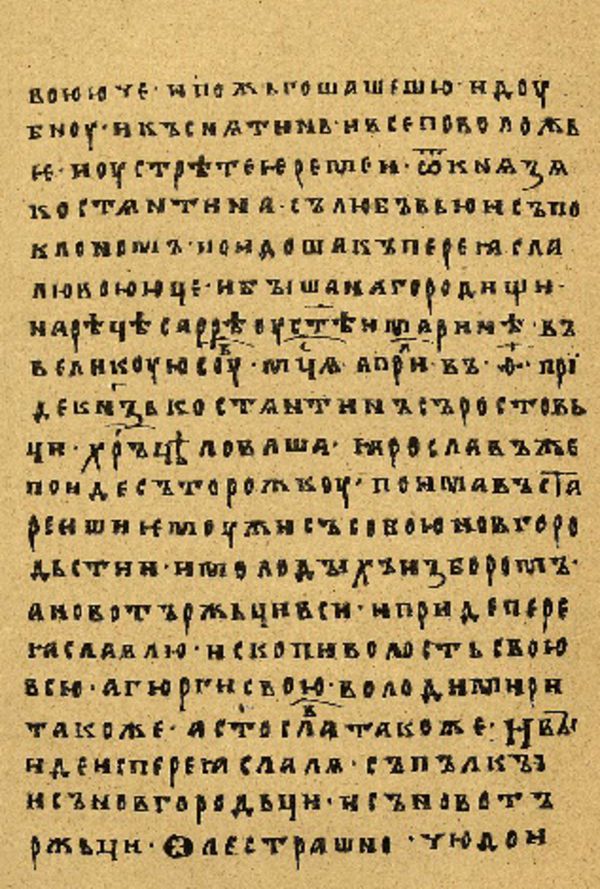 воююче · и пожьгоша шешю · и доу
бноу · и къснѧтинь · и все поволожь
ѥ · и оустрѣте ѥремеи · ѿ кнѧзѧ
костѧнтина · съ любъвью и съ по
клономъ · поидоша къ переꙗсла
лю воююче · и быша на городищи ·
на рѣцѣ сарѣ оу ст҃ѣи маринѣ · въ
великоую соуⷠ · мц҃ѧ априⷧ · въ · ѳ҃ · прі
де кнѧⷥь костѧнтинъ съ ростовь
ци · хр҃ъ цѣловаша · ꙗрославъ же
поиде съ торожкоу · поимавъ ста
реишиѥ моужи съ собою новгоро
дьстии · и молодыхъ изборомъ ·
а новотържьци вси · и приде пере
ꙗславлю · и скопи волость свою
всю · а гюрги свою · володимири
такоже · а ст҃ослаⷡ такоже · И вы
иде ис переꙗслалѧ · съ пълкы
и съ новгородьци · и съ новотъ
ржьци · Оле страшно чюдо и